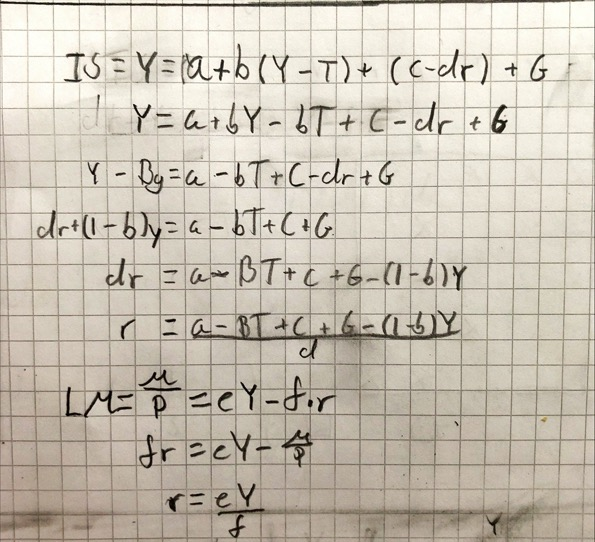 IS = Y = (a + b (Y - T) + (c - dr) + G
Y = a + bY - bT + C - dr + G
Y - By = a - bT + C - dr + G
dr + (1 - b)y = a - bT + C + G
dr = a - BT + C + G - (1 - b)Y
r = a - BT + C + G - (1 - b)Y
d
LM = M/P = eY - f.r
fr = eY - M/P
r = eY
f
Y